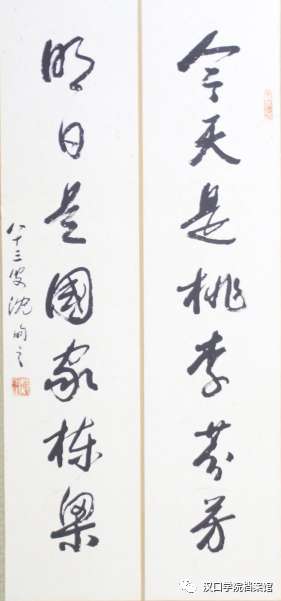 今天是桃李芬芳
明日是国家栋梁
八十三叟沈
汉口学院档案馆